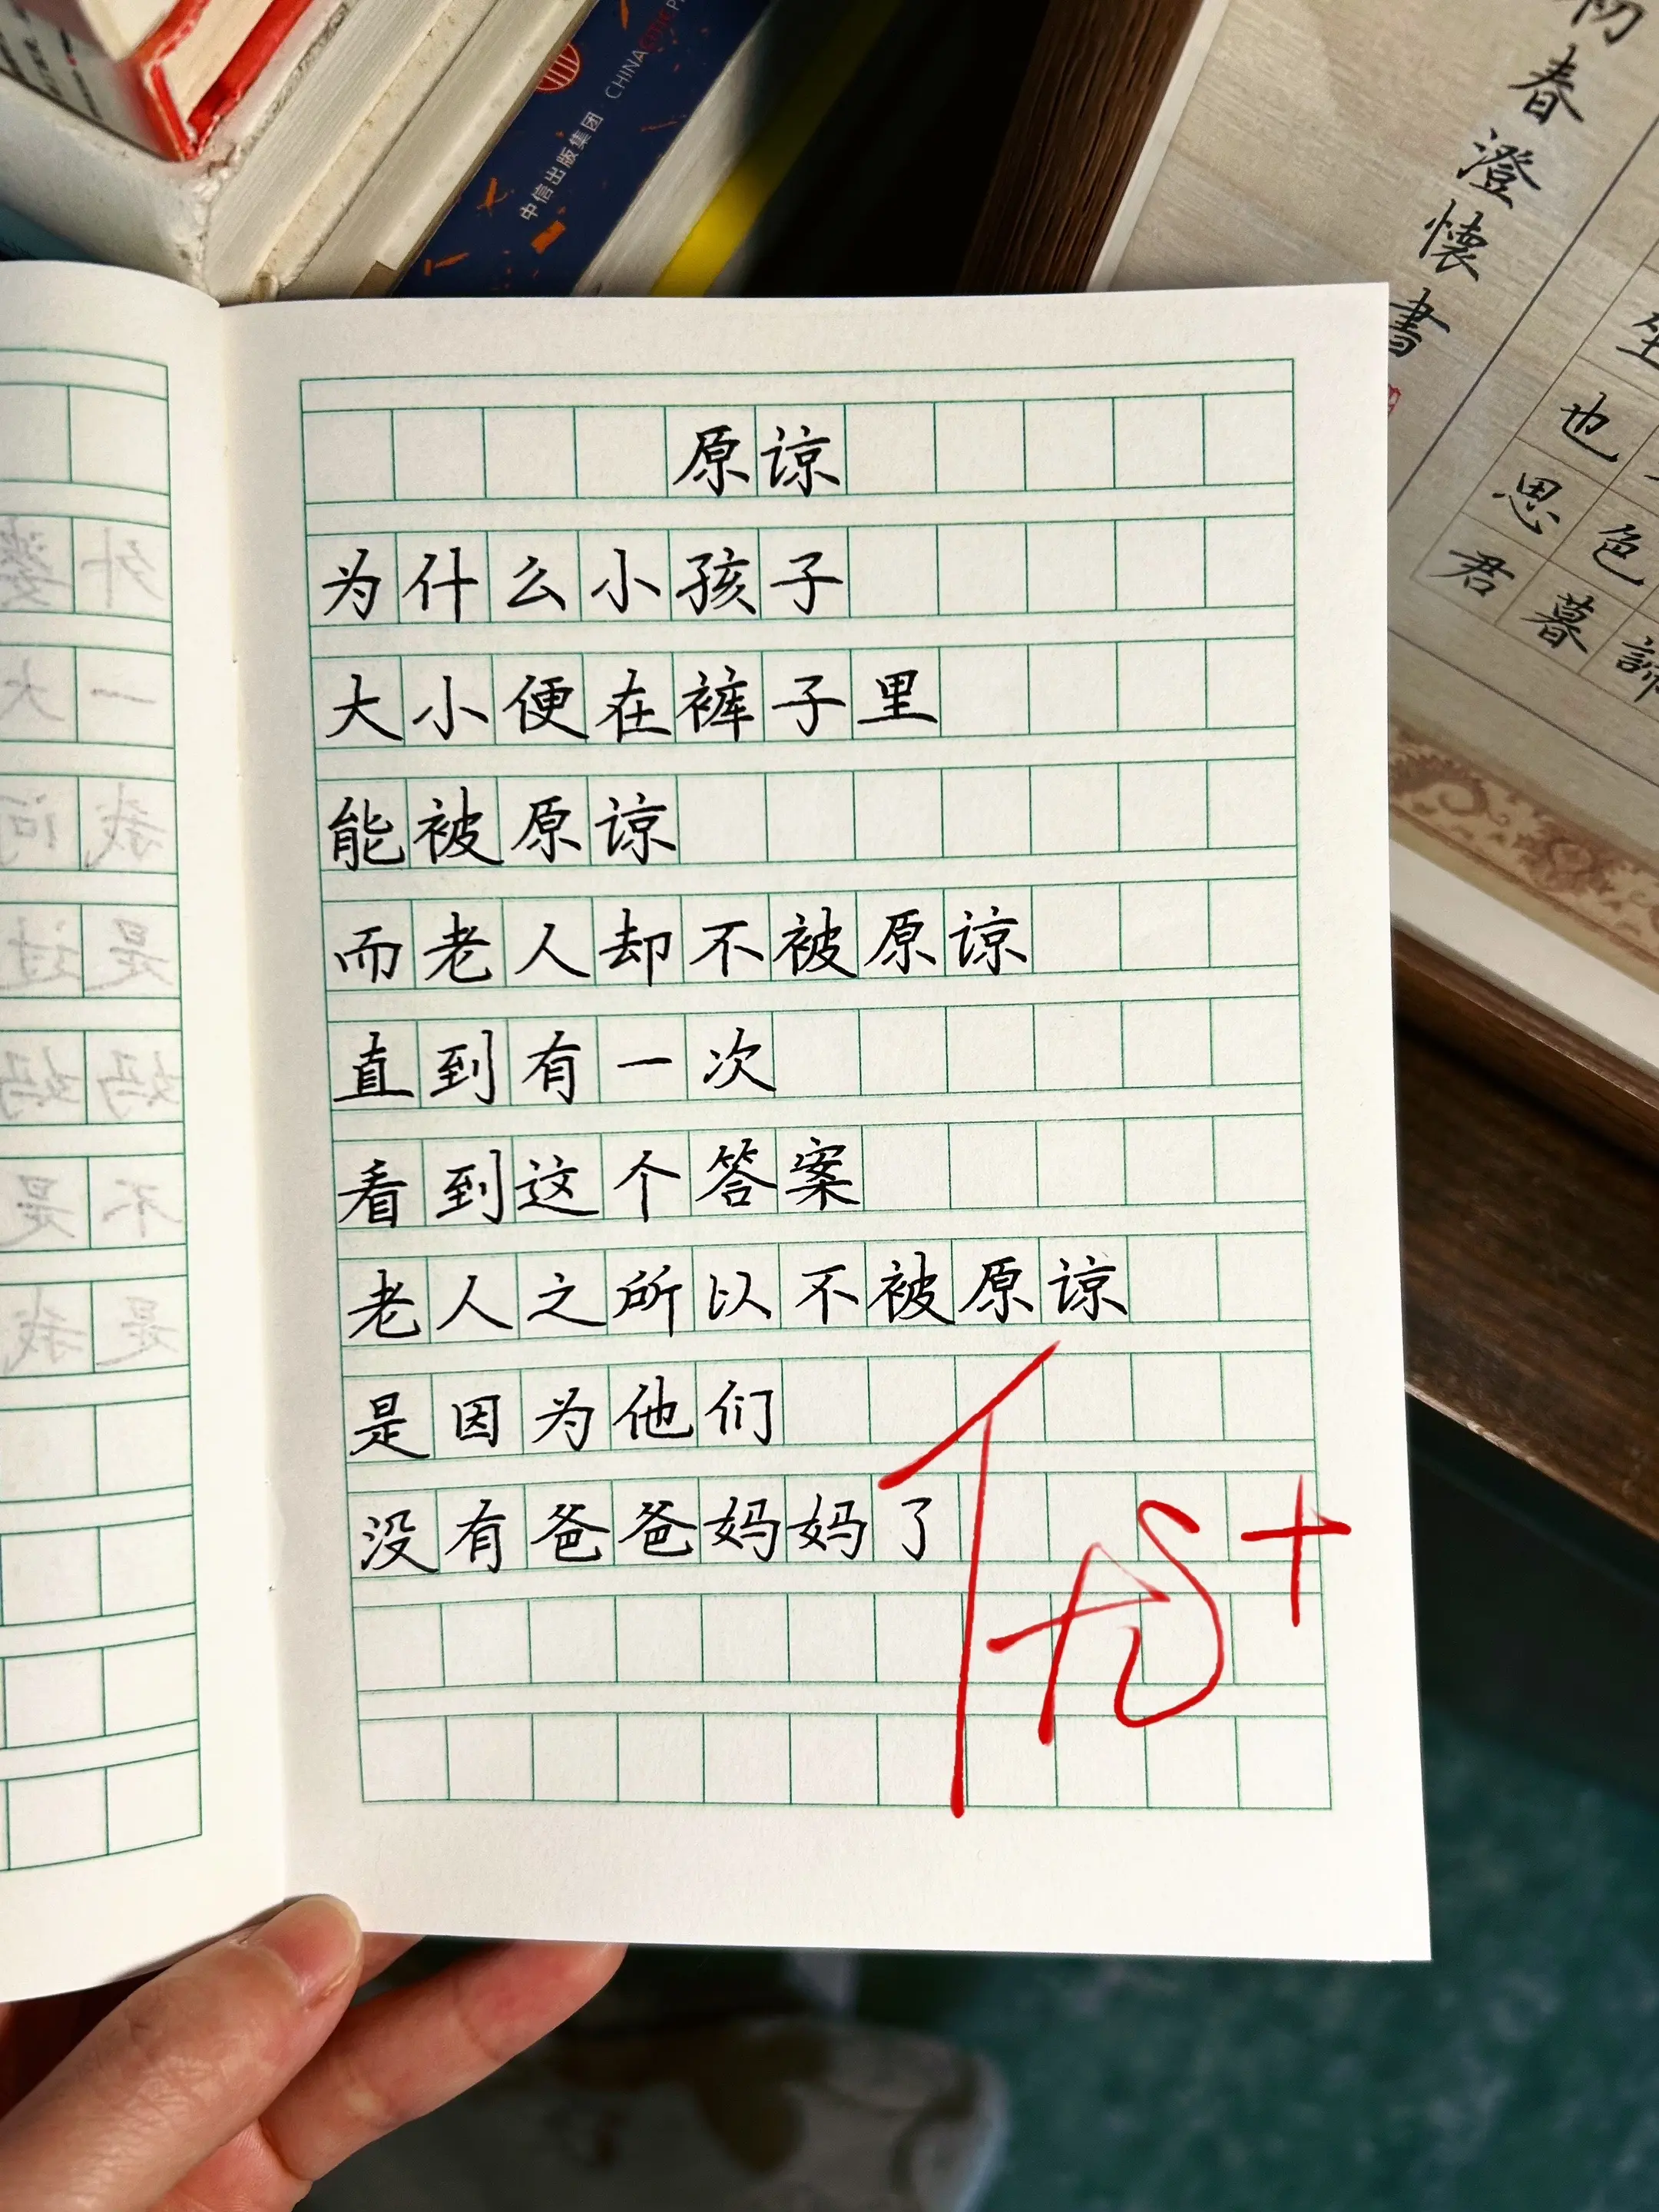 原谅
为什么小孩子
大小便在裤子里
能被原谅
而老人却不被原谅
直到有一次
看到这个答案
老人之所以不被原谅
是因为他们
没有爸爸妈妈了
优+
中信出版集团·CHINA CITIC P
初春澄懷書
坐
也思君
色暮
外婆
一大
我问
是过
妈妈
不是
是我